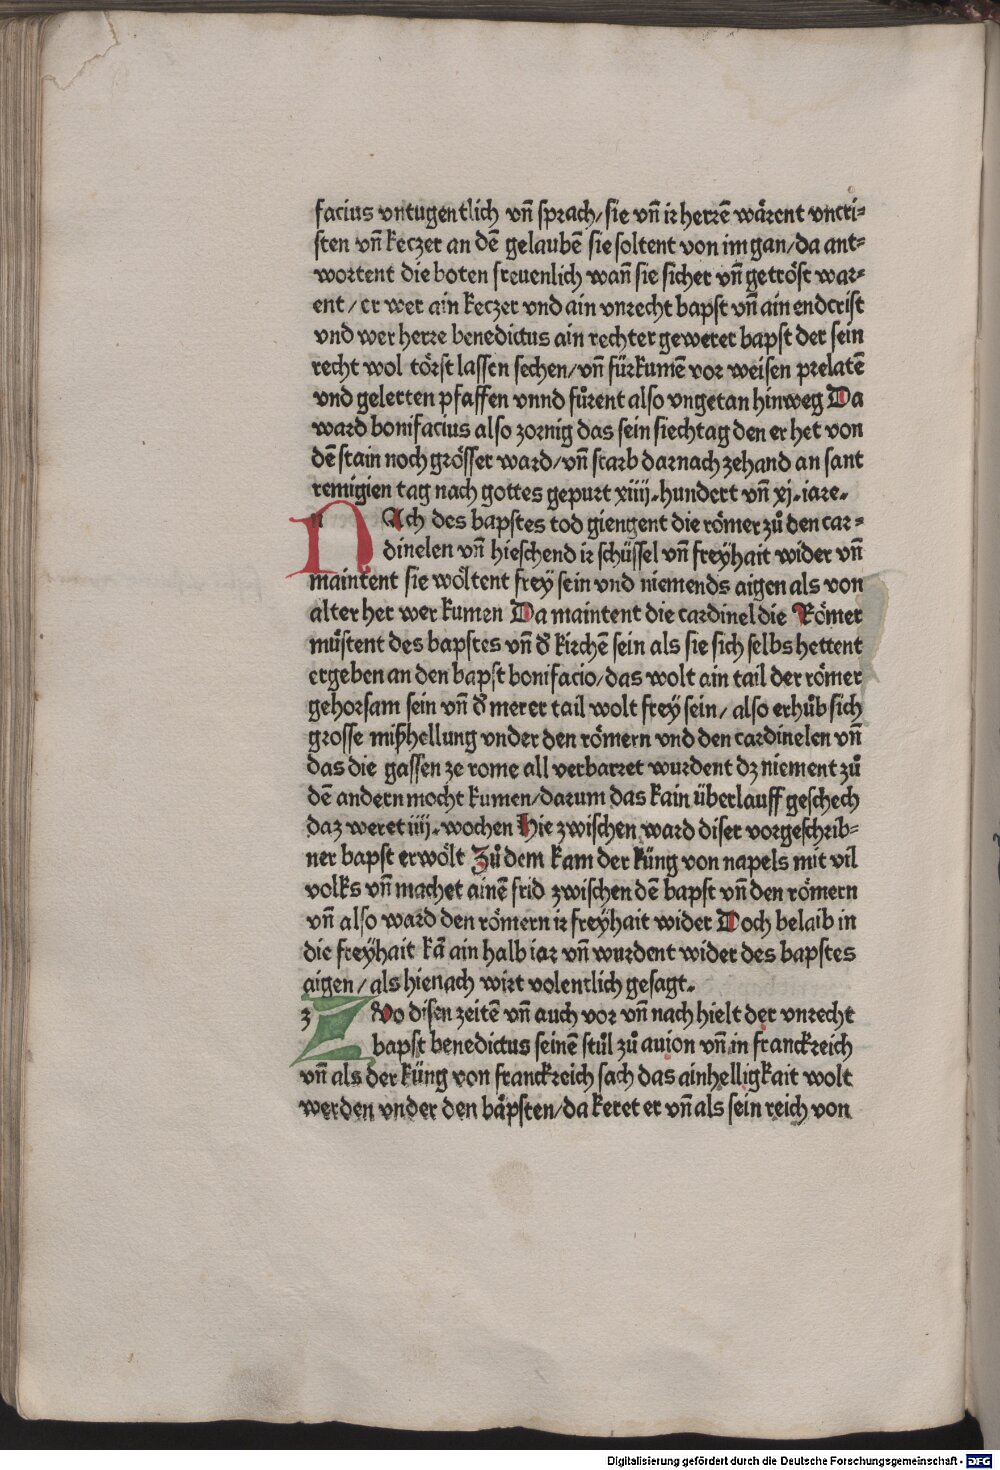 facius vntugentlich vn̄ sprach/sie vn̄ ir herrē wårent vncri⸗
sten vn̄ keczer an dē gelaubē sie soltent von im gan/da ant⸗
wortent die boten freuenlich wan̄ sie sicher vn̄ getröst war⸗
ent/er wer ain keczer vnd ain vnrecht bapst vn̄ ain endcrist
vnd wer herre benedictus ain rechter gewerer bapst der sein
recht wol törst lassen sechen/vn̄ fürkumē vor weisen prelatē
vnd gelerten pfaffen vnnd fůrent also vngetan hinweg Da
ward bonifacius also zornig das sein siechtag den er het von
dē stain noch grösser ward/vn̄ starb darnach zehand an sant
remigien tag nach gottes gepurt xiiij.hundert vn̄ xj.iare.
n NAch des bapstes tod giengent die römer zů den car⸗
dinelen vn̄ hieschend ir schüssel vn̄ freÿhait wider vn̄
maintent sie wöltent frey sein vnd niemends aigen als von
alter her wer kumen Da maintent die cardinel die Römer
můstent des bapstes vn̄ đ kirchē sein als sie sich selbs hettent
ergeben an den bapst bonifacio/das wolt ain tail der römer
gehorsam sein vn̄ đ merer tail wolt frey sein/also erhůb sich
grosse mißhellung vnder den römern vnd den cardinelen vn̄
das die gassen ze rome all verbarret wurdent dz niement zů
dē andern mocht kumen/darum das kain überlauff geschech
daz weret iiij.wochen Hie zwischen ward diser vorgeschrib⸗
ner bapst erwölt Zů dem kam der küng von napels mit vil
volks vn̄ machet ainē frid zwischen dē bapst vn̄ den römern
vn̄ also ward den römern ir freÿhait wider Doch belaib in
die freÿhait kā ain halb iar vn̄ wurdent wider des bapstes
aigen/als hienach wirt volentlich gesagt.
z Zvo disen zeitē vn̄ auch vor vn̄ nach hielt der vnrecht
bapst benedictus seinē stůl zů auion vn̄ in franckreich
vn̄ als der küng von franckreich sach das ainhelligkait wolt
werden vnder den båpsten/da keret er vn̄ als sein reich von
Digitalisierung gefördert durch die Deutsche Forschungsgemeinschaft - DFG